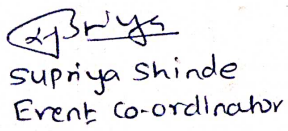 Supriya Shinde
Event Co-ordinator